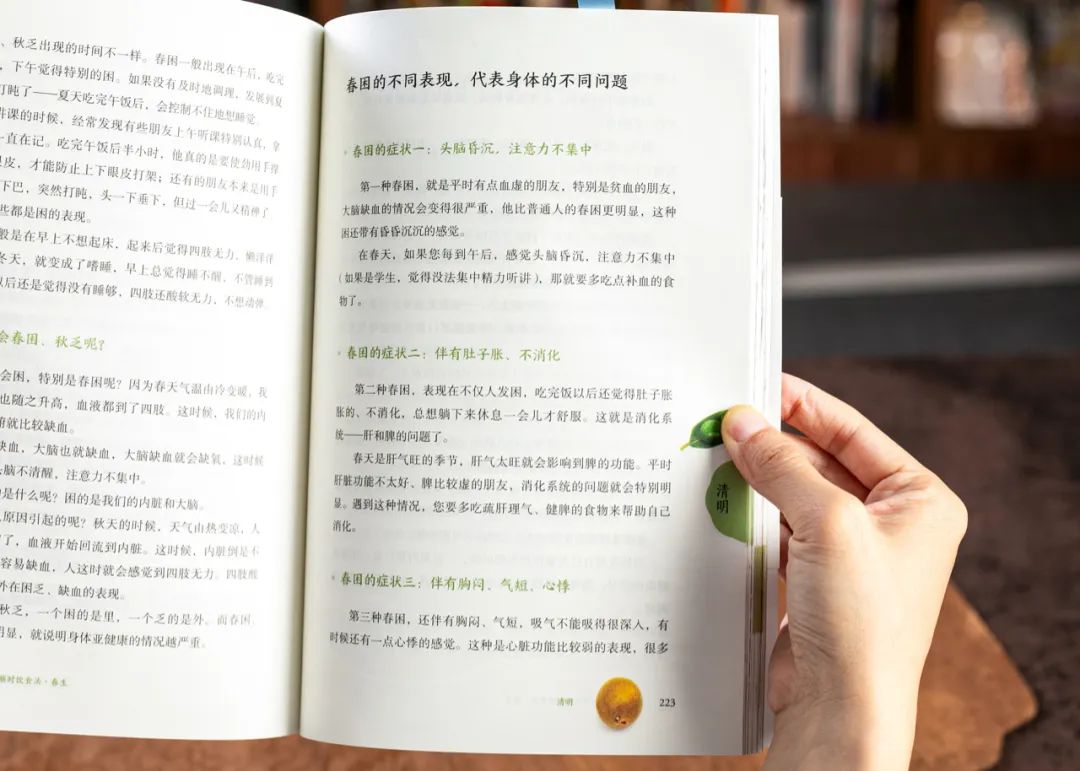 、秋乏出现的时间不一样。春困一般出现在午后，吃完
，下午觉得特别的困。如果没有及时地调理，发展到夏
打盹了——夏天吃完午饭后，会控制不住地想睡觉。
讲课的时候，经常发现有些朋友上午听课特别认真，拿
一直在记。吃完午饭后半小时，他真的是要使劲用手撑
眼皮，才能防止上下眼皮打架；还有的朋友本来是用手
下巴，突然打盹，头一下垂下，但过一会儿又精神了
些都是困的表现。
般是在早上不想起床，起来后觉得四肢无力，懒洋洋
冬天，就变成了嗜睡，早上总觉得睡不醒，不管睡到
以后还是觉得没有睡够，四肢还酸软无力，不想动弹。
会春困、秋乏呢？
会困，特别是春困呢？因为春天气温由冷变暖，我
也随之升高，血液都到了四肢。这时候，我们的内
脏就比较缺血。
缺血，大脑也就缺血，大脑缺血就会缺氧，这时候
头脑不清醒，注意力不集中。
的是什么呢？困的是我们的内脏和大脑。
原因引起的呢？秋天的时候，天气由热变凉，人
了，血液开始回流到内脏。这时候，内脏倒是不
容易缺血，人这时就会感觉到四肢无力。四肢酸
外在困乏、缺血的表现。
秋乏，一个困的是里，一个乏的是外。而春困、
明显，就说明身体亚健康的情况越严重。
顺时饮食法·春生
春困的不同表现，代表身体的不同问题
春困的症状一：头脑昏沉，注意力不集中
第一种春困，就是平时有点血虚的朋友，特别是贫血的朋友，
大脑缺血的情况会变得很严重，他比普通人的春困更明显，这种
困还带有昏昏沉沉的感觉。
在春天，如果您每到午后，感觉头脑昏沉，注意力不集中
（如果是学生，觉得没法集中精力听讲），那就要多吃点补血的食
物了。
春困的症状二：伴有肚子胀、不消化
第二种春困，表现在不仅人发困，吃完饭以后还觉得肚子胀
胀的、不消化，总想躺下来休息一会儿才舒服。这就是消化系
统——肝和脾的问题了。
春天是肝气旺的季节，肝气太旺就会影响到脾的功能。平时
肝脏功能不太好、脾比较虚的朋友，消化系统的问题就会特别明
显。遇到这种情况，您要多吃疏肝理气、健脾的食物来帮助自己
消化。
春困的症状三：伴有胸闷、气短、心悸
第三种春困，还伴有胸闷、气短，吸气不能吸得很深入，有
时候还有一点心悸的感觉。这种是心脏功能比较弱的表现，很多
清明
清明
223